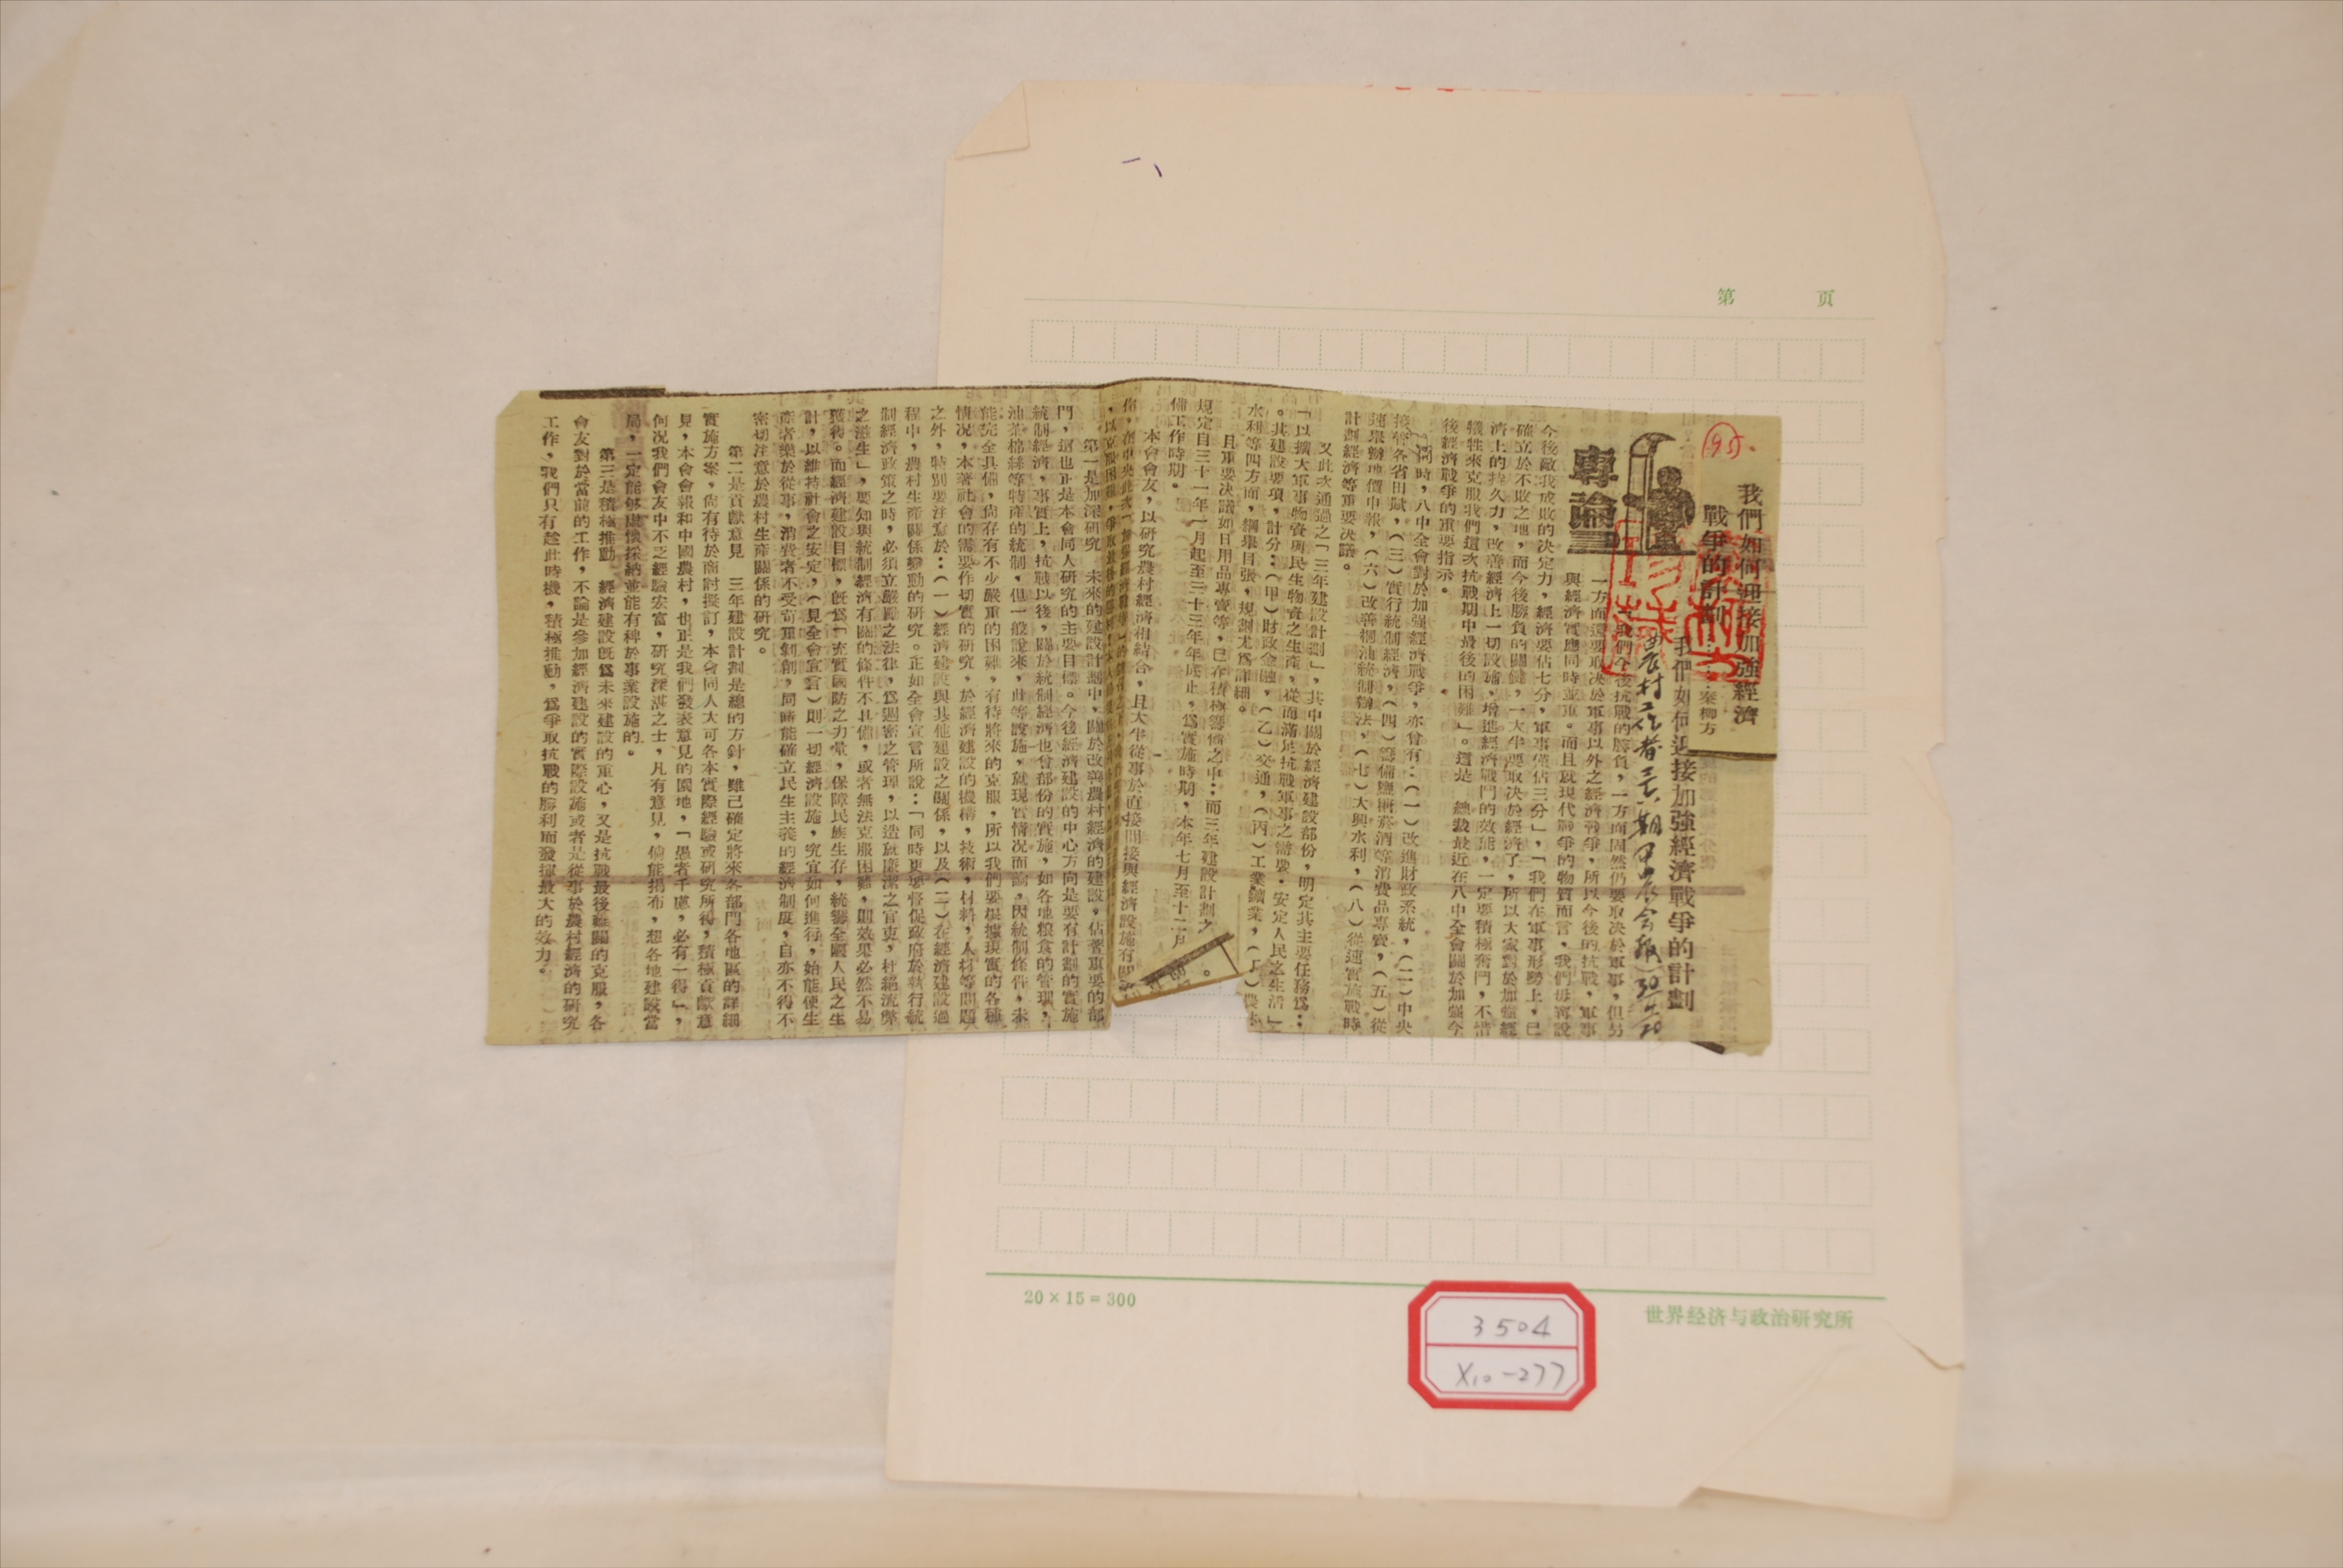 第 頁
95.
我們如何迎接加強經濟
戰爭的計劃
秦柳方
我們如何迎接加強經濟戰爭的計劃
專論
我們今後抗戰的勝負，一方面固然仍要取決於軍事，但另
一方面還要取決於軍事以外之經濟戰爭，所以今後的抗戰，軍事
與經濟實應同時並重。而且就現代戰爭的物質而言，我們毋寧說
今後敵我成敗的决定力，經濟要佔七分，軍事僅佔三分」，「我們在軍事形勢上，已
確立於不敗之地，而今後勝負的關鍵，一大半要取決於經濟了，所以大家對於加強經
濟上的持久力，改善經濟上一切設施，增進經濟戰鬥的效能，一定要積極奮鬥，不惜
犧牲來克服我們這次抗戰期中最後的困難」。這是 總裁最近在八中全會關於加強今
後經濟戰爭的重要指示。
同時，八中全會對於加強經濟戰爭，亦曾有：（一）改進財政系統，（二）中央
接管各省田賦，（三）實行統制經濟，（四）籌備鹽糖菸酒等消費品專賣，（五）從
速舉辦地價申報，（六）改善桐油統制辦法，（七）大興水利，（八）從速實施戰時
計劃經濟等重要决議。
又此次通過之「三年建設計劃」，其中關於經濟建設部份，明定其主要任務爲：
「以擴大軍事物資與民生物資之生產，從而滿足抗戰軍事之需要，安定人民之生活」
。其建設要項，計分：（甲）財政金融，（乙）交通，（丙）工業鑛業，（丁）農林
水利等四方面，綱舉目張，規劃尤爲詳細。
且重要决議如日用品專賣等，已在積極籌備之中；而三年建設計劃之
規定自三十一年一月起至三十三年年底止，爲實施時期，本年七月至十二月
備工作時期。
本會會友，以研究農村經濟相結合，且大半從事於直接間接與經濟設施有關
第一是加深研究 未來的建設計劃中，關於改善農村經濟的建設，佔著重要的部
門，這也正是本會同人研究的主要目標。今後經濟建設的中心方向是要有計劃的實施
統制經濟，事實上，抗戰以後，關於統制經濟也曾部份的實施，如各地粮食的管理，
油茶棉絲等特產的統制，但一般說來，此等設施，就現實情況而論，因統制條件，未
能完全具備，尙存有不少嚴重的困難，有待將來的克服，所以我們要根據現實的各種
情况，本著社會的需要作切實的研究，於經濟建設的機構，技術，材料，人材等問題
之外，特別要注意於：（一）經濟建設與其他建設之關係，以及（二）在經濟建設過
程中，農村生產關係變動的研究。正如全會宣言所說：「同時更要督促政府於執行統
制經濟政策之時，必須立嚴厲之法律，爲週密之管理，以造就廉潔之官吏，杜絕流弊
之滋生」，要知與統制經濟有關的條件不具備，或者無法克服困難，則效果必然不易
獲得。而經濟建設目標，旣爲「充實國防之力量，保障民族生存，統籌全國人民之生
計，以維持社會之安定，（見全會宣言）則一切經濟設施，究宜如何進行，始能使生
產者樂於從事，消費者不受苛重剝削，同時能確立民生主義的經濟制度，自亦不得不
密切注意於農村生產關係的研究。
第二是貢獻意見 三年建設計劃是總的方針，雖已確定將來各部門各地區的詳細
實施方案，尙有待於商討擬訂，本會同人大可各本實際經驗或研究所得，積極貢獻意
見，本會會報和中國農村，也正是我們發表意見的園地，「愚者千慮，必有一得」，
何况我們會友中不乏經驗宏富，研究深湛之士，凡有意見，倘能揭布，想各地建設當
局，一定能够虛懷採納並能有裨於事業設施的。
第三是積極推動 經濟建設旣爲未來建設的重心，又是抗戰最後難關的克服，各
會友對於當前的工作，不論是參加經濟建設的實際設施或者是從事於農村經濟的研究
工作，我們只有趁此時機，積極推動，爲爭取抗戰的勝利而發揮最大的效力。
20×15=300
世界经济与政治研究所
3504
X10-277